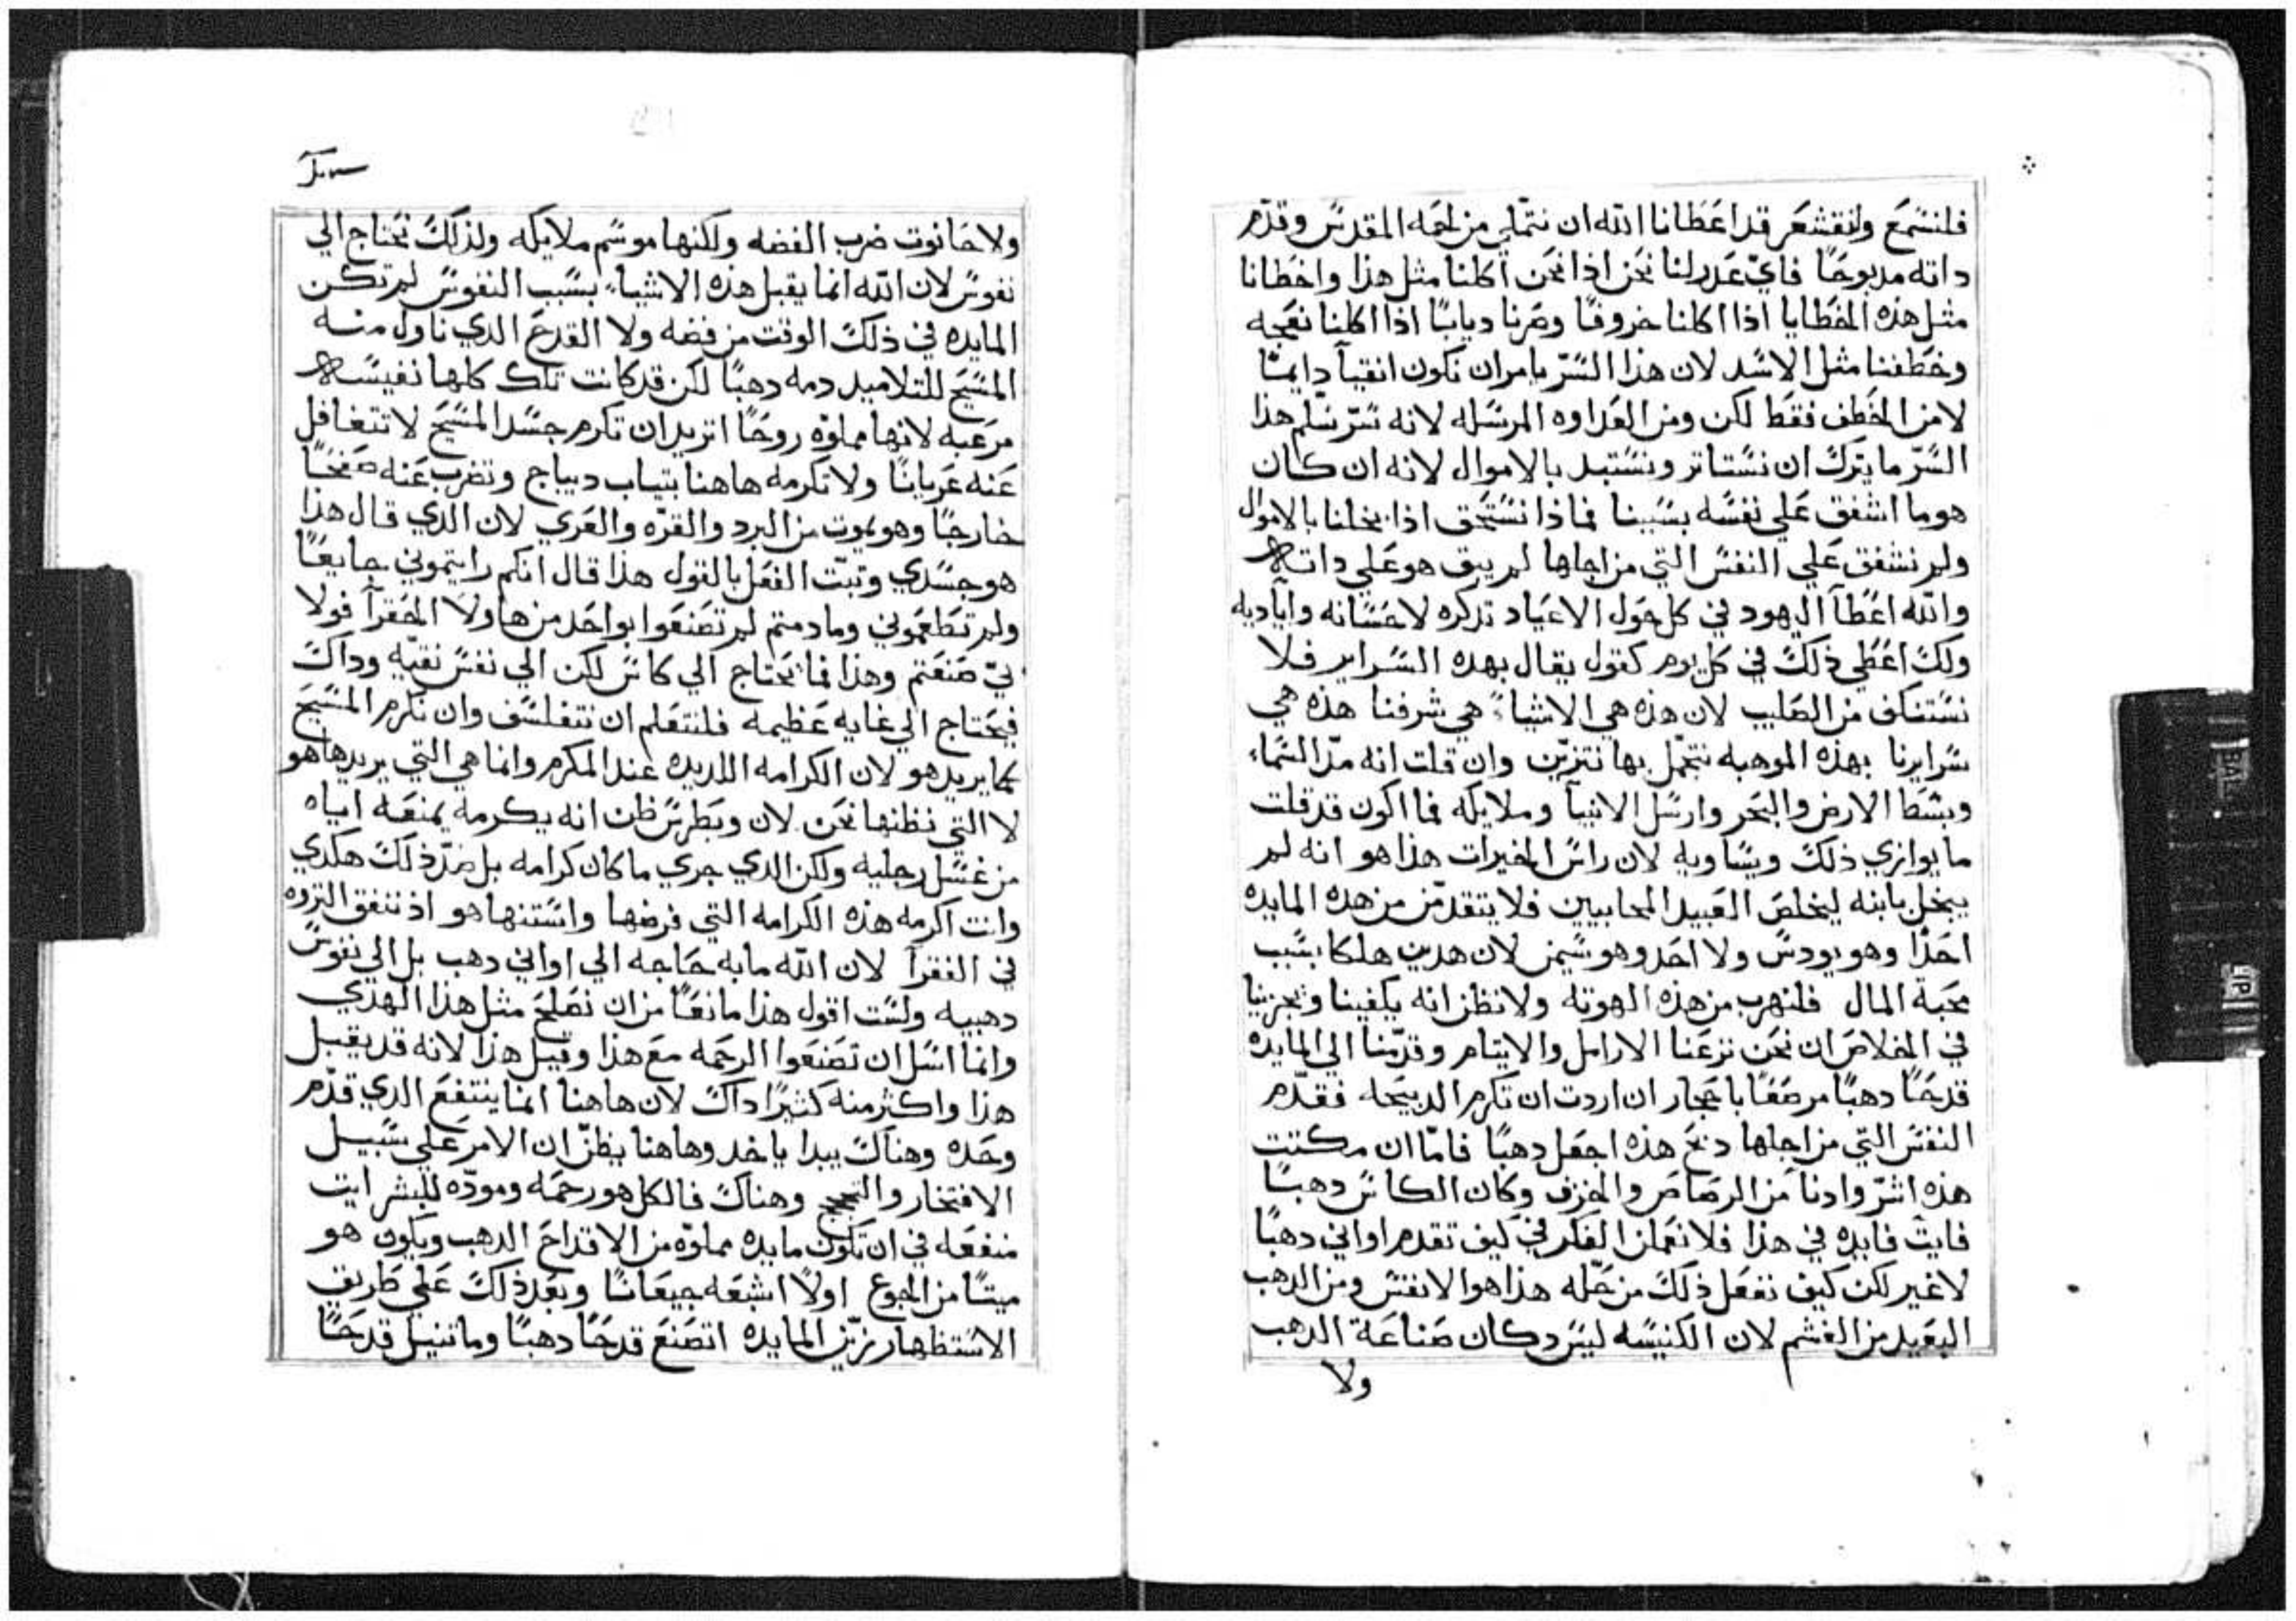 فلنسمع ولنقشعر قد اعطانا الله ان نتملي من لحمه المقدس وقدم
داته مدبوحًا فاي عدر لنا نحن اذا نحن اكلنا مثل هذا واخطانا
مثل هذه الخطايا اذا اكلنا خروفًا وصرنا ديابًا اذا اكلنا نعجه
وخطفنا مثل الاسد لان هذا السر يامر ان نكون انقيآ دايمًا
لا من الخطف فقط لكن ومن العداوه المرسله لانه سر سلم هذا
السر ما يترك ان نستاتر ونستبد بالاموال لانه ان كان
هو ما اشفق علي نفسه بسببنا فماذا نستحق اذا بخلنا بالاموال
ولم نشفق علي النفس التي من اجلها لم يبق هو علي داته
والله اعطآ اليهود في كل حول الاعياد تدكره لاحسانه واياديه
ولك اعطي ذلك في كل يوم كقول يقال بهده السراير فلا
نستنكف من الصليب لان هذه هي الاشياء هي شرفنا هذه هي
سرايرنا بهذه الموهبه نتجمل بها نتزين وان قلت انه مد السماء
وبسط الارض والبحر وارسل الانبيآ وملايكه فما اكون قد قلت
ما يوازي ذلك ويساويه لان راس الخيرات هذا هو انه لم
يبخل بابنه ليخلص العبيد المحابيين فلا يتقدمن من هده المايده
احدًا وهو يودس ولا احد وهو سيمن لان هدين هلكا بسبب
محبة المال فلنهرب من هذه الهوته ولا نظن انه يكفينا ويجزينا
في الخلاص ان نحن نزعنا الارامل والايتام وقدمنا الي المايده
قدحًا دهبًا مرصعًا باحجار ان اردت ان تكرم الدبيحه فقدم
النفس التي من اجلها دبح هذه اجعل دهبًا فاما ان مكنت
هذه اشر وادنا من الرصاص والخزف وكان الكاس دهبًا
فايت فايده في هذا فلا نعملن الفكر في كيف تقدم اواني دهبًا
لا غير لكن كيف نفعل ذلك من حله هذا هو الانفس ومن الدهب
البعيد من الغشم لان الكنيسه ليس دكان صناعة الدهب
ولا
ولا حانوت ضرب الفضه ولكنها موسم ملايكه ولذلك نحتاج الي
نفوس لان الله انما يقبل هذه الاشياء بسبب النفوس لم تكن
المايده في ذلك الوقت من فضه ولا القدح الدي ناول منه
المسيح للتلاميد دمه دهبًا لكن قد كانت تلك كلها نفيسه
مرعبه لانها مملوه روحًا اتريد ان تكرم جسد المسيح لا تتغافل
عنه عريانًا ولا تكرمه هاهنا بتياب ديباج وتضرب عنه صفحًا
خارجًا وهو يموت من البرد والقره والعري لان الدي قال هذا
هو جسدي وتبت الفعل بالقول هذا قال انكم رايتموني جايعًا
ولم تطعموني وما دمتم لم تصنعوا بواحد من هاولا الحقرآ فولا
بي صنعتم وهذا فما يحتاج الي كاس لكن الي نفس نقيه وداك
فيحتاج الي غايه عظيمه فلنتعلم ان نتفلسف وان نكرم المسيح
كما يريد هو لان الكرامه اللديده عند المكرم وانما هي التي يريدها هو
لا التي نظنها نحن لان وبطرس ظن انه يكرمه يمنعه اياه
من غسل رجليه ولكن الدي جري ما كان كرامه بل ضد ذلك هكدي
وانت اكرمه هذه الكرامه التي فرضها واستنها هو اذ تنفق التروه
في الفقرآ لان الله ما به حاجه الي اواني دهب بل الي نفوس
دهبيه ولست اقول هذا مانعًا من ان نصلح مثل هذا الهدي
وانما اسل ان تصنعوا الرحمه مع هذا وقبل هذا لانه قد يقبل
هذا واكثر منه كثيرًا داك لان هاهنا انما ينتفع الدي قدم
وحده وهناك يبدا ياخد وهاهنا يظن ان الامر علي سبيل
الافتخار وهناك فالكل هو رحمه ومودّه للبشر ايت
منفعه في ان تكون مايده مملوّه من الاقداح الدهب ويكون هو
ميتًا من الجوع اولًا اشبعه جيعانًا وبعد ذلك علي طريق
الاستظهار زين المايده اتصنع قدحًا دهبًا وما تنيل قدحًا